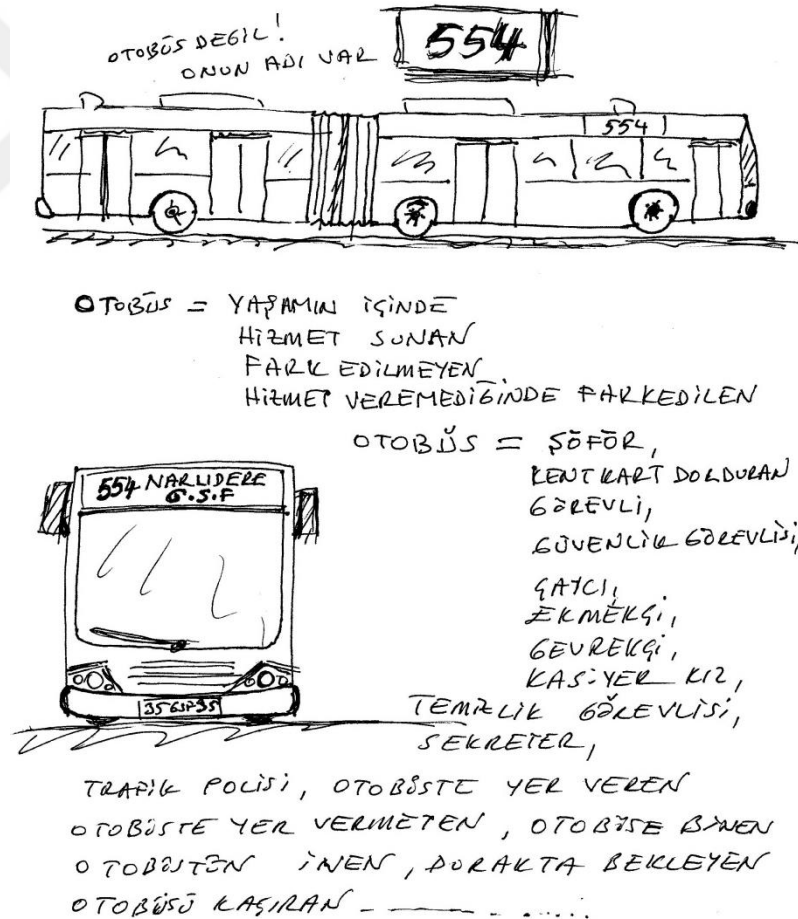 OTOBÜS DEĞİL!
ONUN ADI VAR
554
554
OTOBÜS = YAŞAMIN İÇİNDE
HİZMET SUNAN
FARK EDİLMEYEN
HİZMET VEREMEDİĞİNDE FARKEDİLEN
OTOBÜS = ŞÖFÖR,
KENTKART DOLDURAN
GÖREVLİ,
GÜVENLİK GÖREVLİSİ,
ÇAYCI,
EKMEKÇİ,
GEVREKÇİ,
KASİYER KIZ,
TEMİZLİK GÖREVLİSİ,
SEKRETER,
554 NARLIDERE
G.S.F
TRAFİK POLİSİ, OTOBÜSTE YER VEREN
OTOBÜSTE YER VERMEYEN, OTOBÜSE BİNEN
OTOBÜSTEN İNEN, DURAKTA BEKLEYEN
OTOBÜSÜ KAÇIRAN - — - - .....